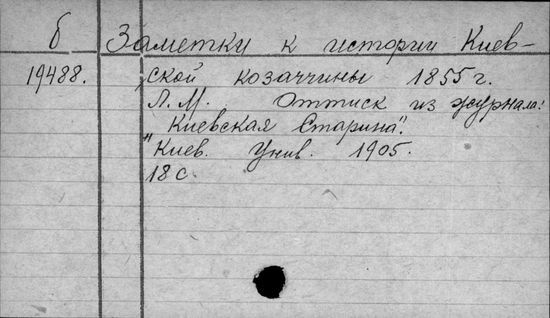 б Заметки к истории Киев-
19488. ской козаччины 1855 г.
Л. М. Оттиск из журнала:
"Киевская Старина".
Киев. Унив. 1905.
18 с.